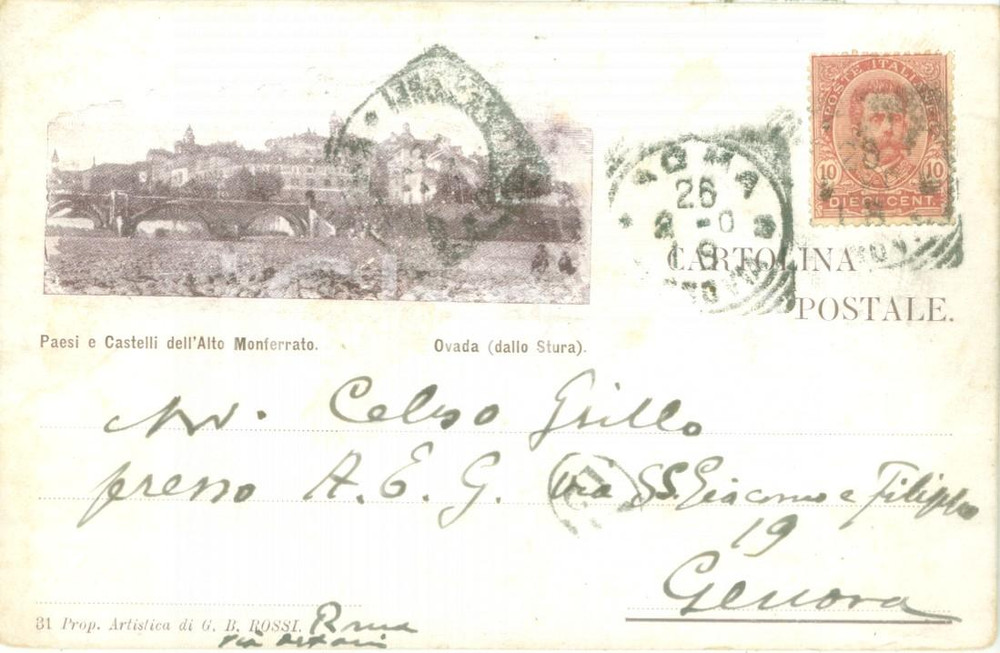 POSTE ITALIANE
10 10
DIECI CENT.
ROMA
26
CARTOLINA
POSTALE.
Paesi e Castelli dell'Alto Monferrato. Ovada (dallo Stura).
Avv. Celso Grillo
presso A. E. G. (via SS. Giacomo e Filippo
19
Genova
31 Prop. Artistica di G. B. ROSSI. Roma
via